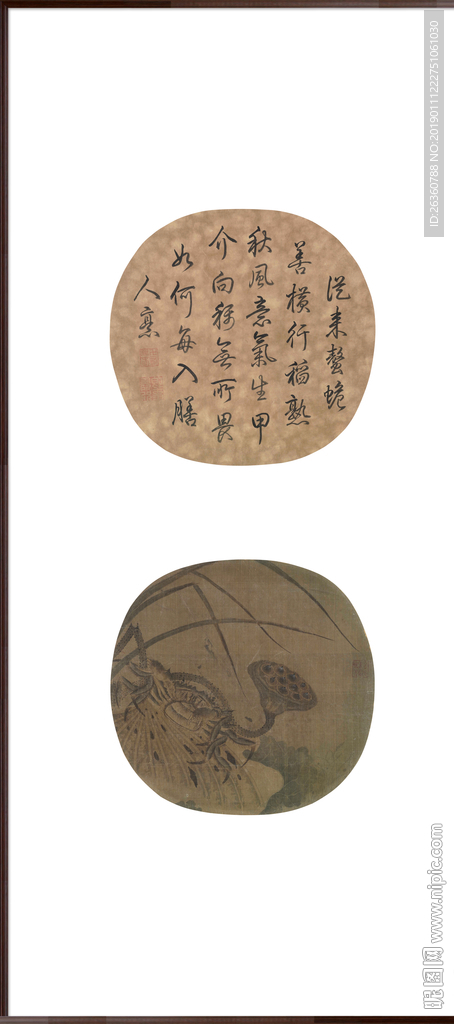 從来螯
善橫行稻熟
秋風意氣生甲
介向稱無所畏
如何每入膳
人烹
ID:26360788 NO:20190111222751061030
昵图网 www.nipic.com